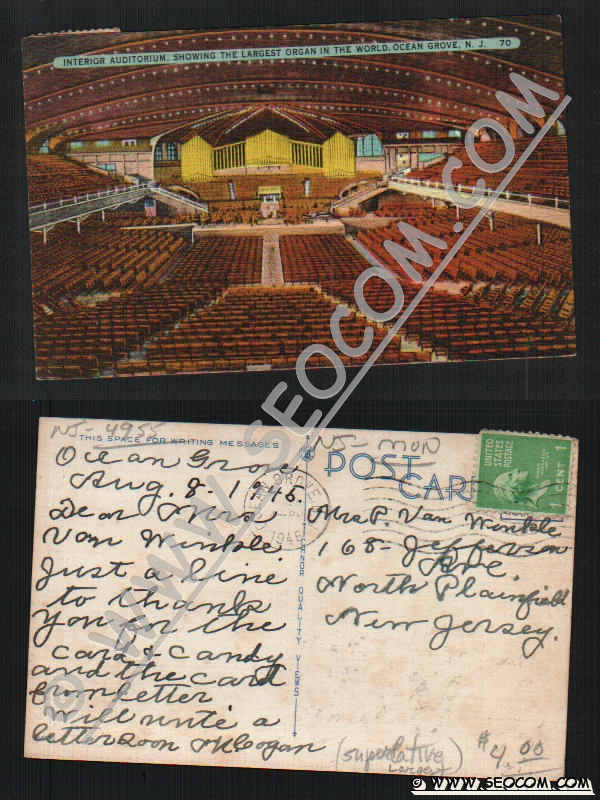 INTERIOR AUDITORIUM, SHOWING THE LARGEST ORGAN IN THE WORLD, OCEAN GROVE, N. J. 70
WWW.SEOCOM.COM
NJ- 4955
NJ- MON
THIS SPACE FOR WRITING MESSAGES
POST CARD
UNITED STATES POSTAGE
1 CENT 1
GROVE
1945
Ocean Grove
Aug. 8, 1945.
Dear Mrs
Van Winkle
Just a line
to thank
you for the
card & candy
and the card
from letter
will write a
letter soon
Mrs P. Van Winkle
168- Jefferson
Ave.
North Plainfield
New Jersey.
QUALITY VIEWS
(superlative
Largest)
$4.00
© WWW.SEOCOM.COM